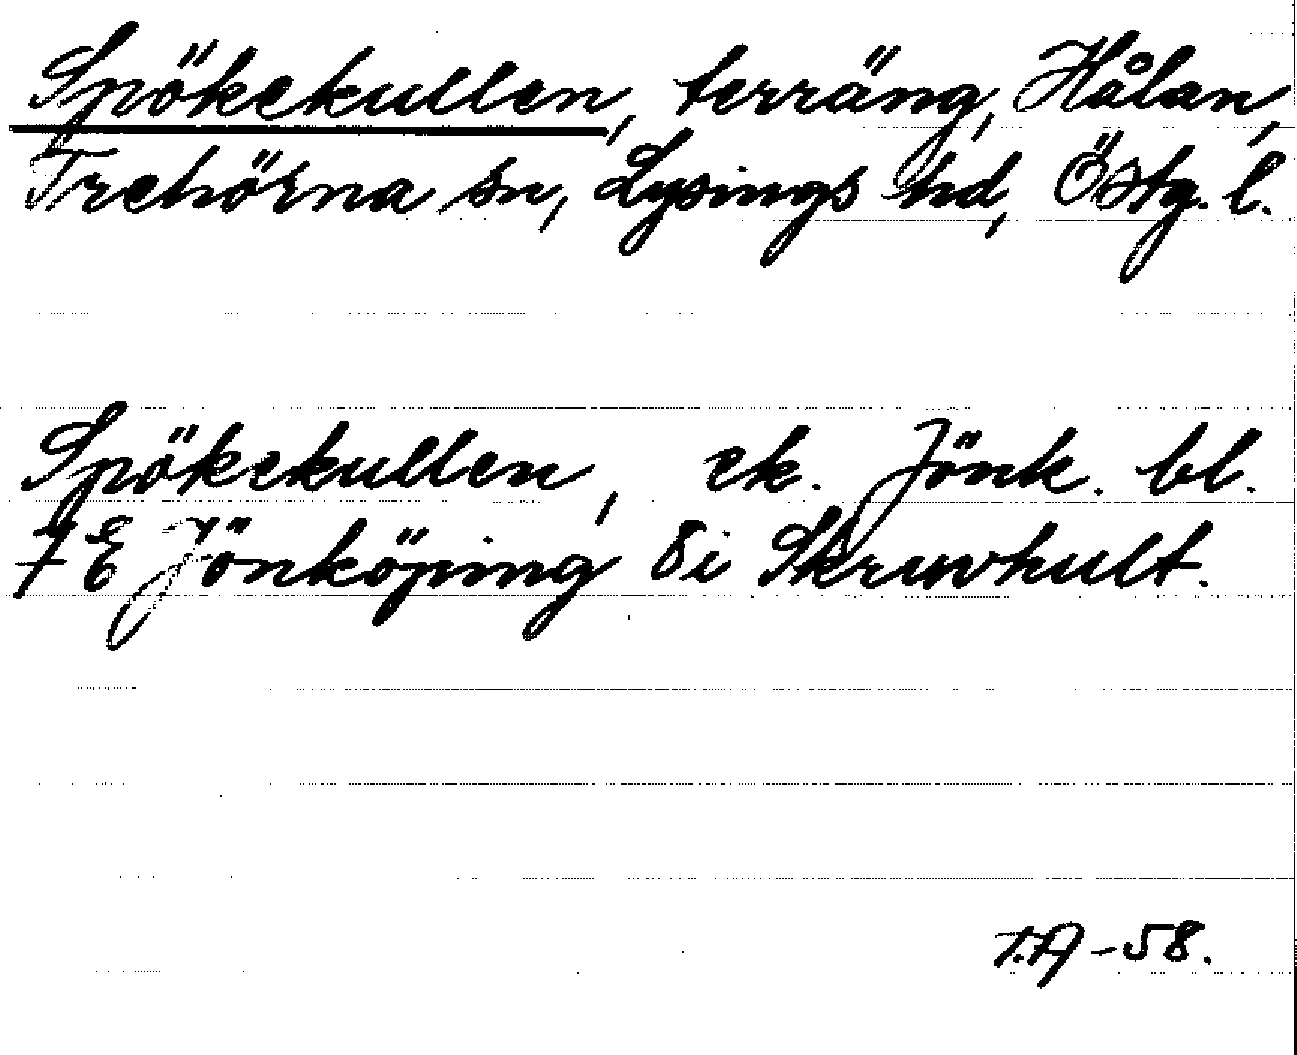 Spökekullen, terräng, Hålan,
Trehörna sn, Lysings hd, Östg. l.
Spökekullen, ek. Jönk. bl.
7E Jönköping 8i Skruvhult.
T.A -58.